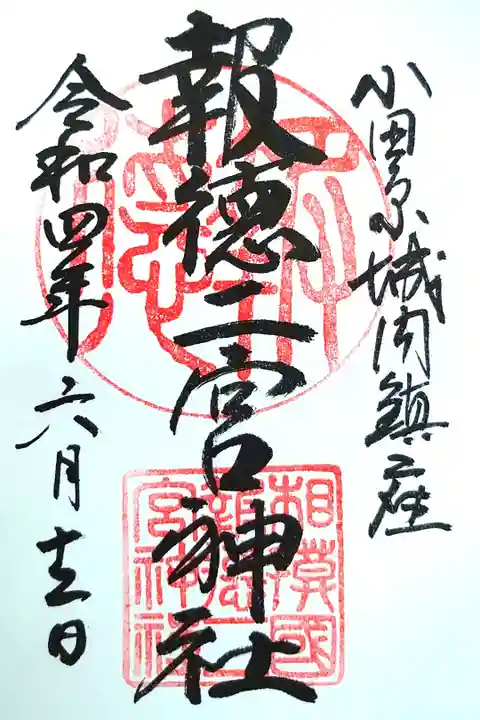 小田原城内鎮座
報徳二宮神社
令和四年六月十三日
相模國
報徳二
宮神社